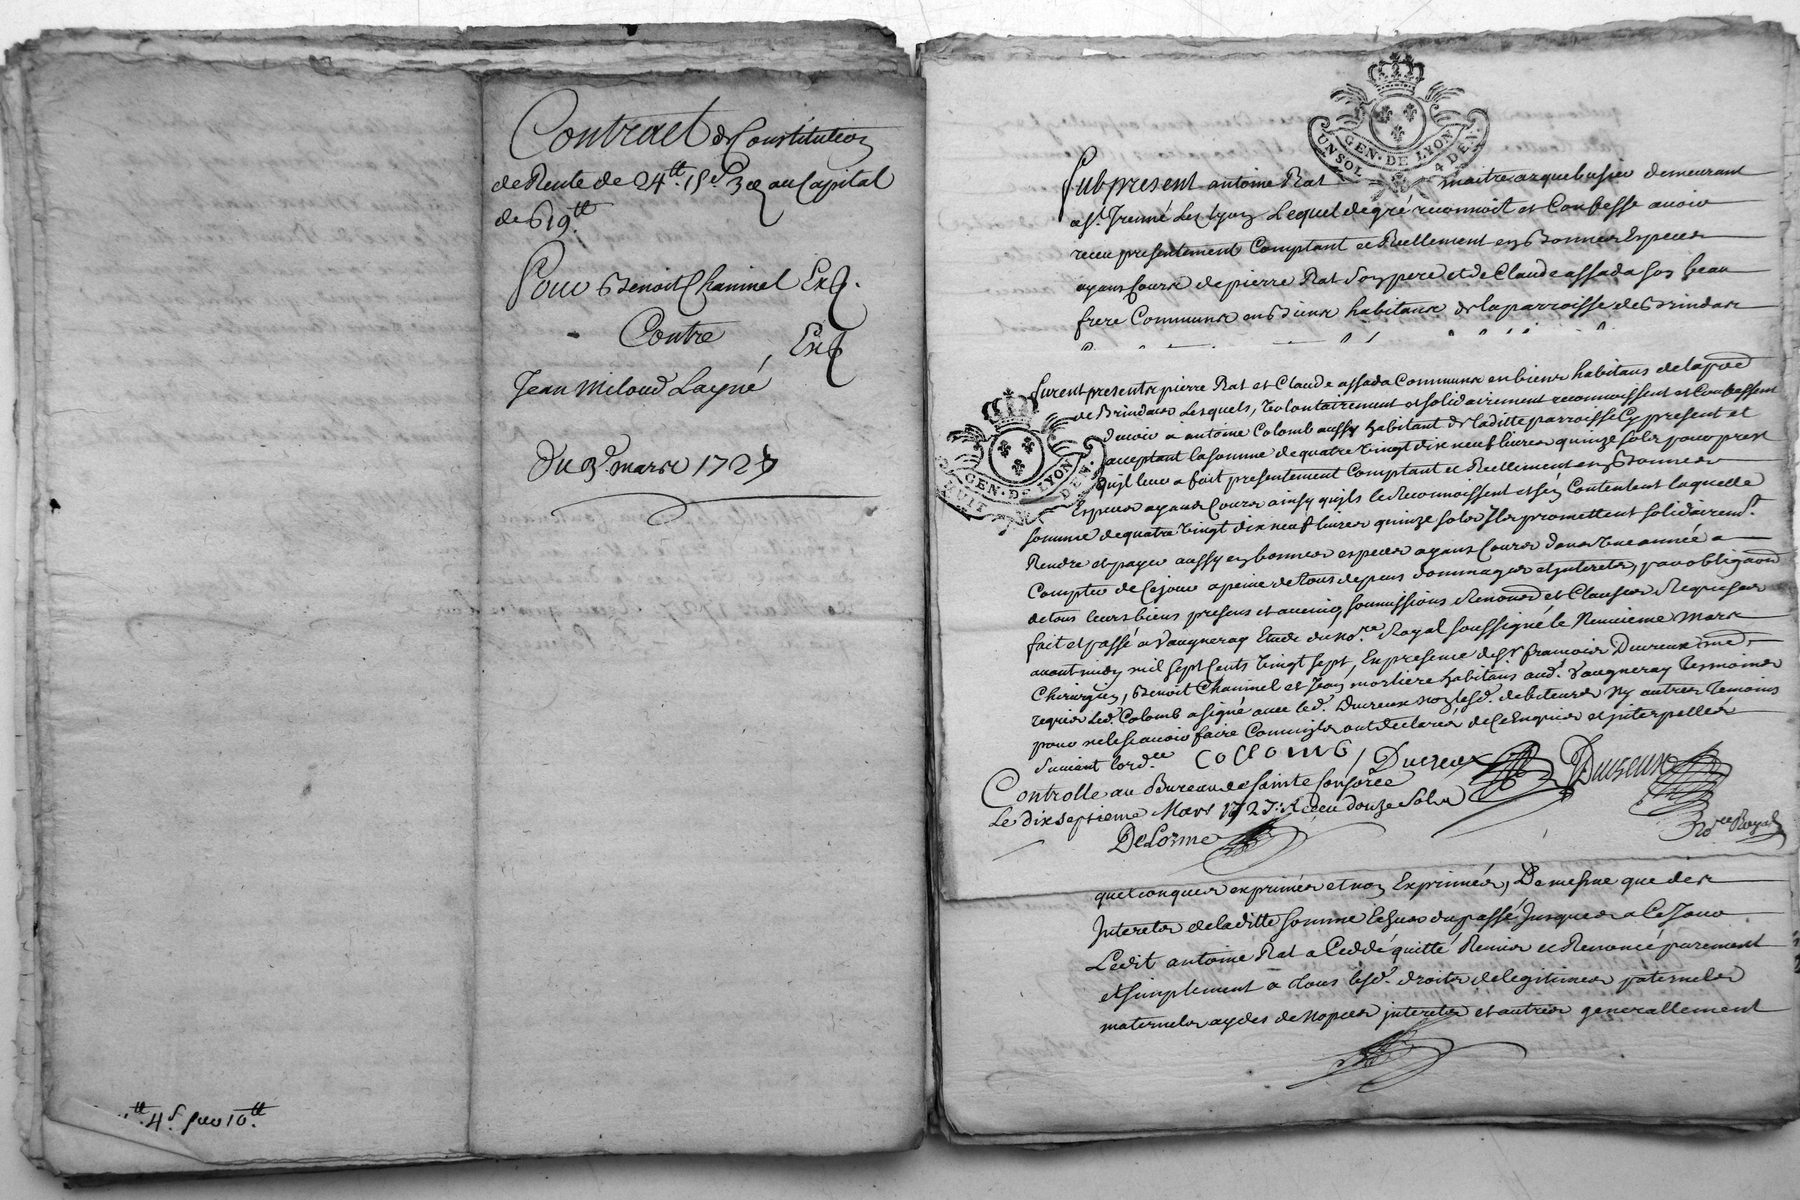 Contract de Constitution
de Rente de 24tt. 15s. 3d au Capital
de 619tt.
Pour Benoit Chaninel Exp.
Contre Exp
Jean Miloud Layné
du 3e. mars 1727
tt. 4s. pour 10tt.
GEN. DE LYON
UN SOL 4 DEN.
Fut present antoine Rat maitre arquebusier demeurant
a St. Irenné Les Lyon Lequel de gré reconnoit et Confesse avoir
receu presentement Comptant et Reellement en Bonnes Especes
ayans Cours de pierre Rat son pere et de Claude assada son beau
frere Communs en Biens habitans de la parroisse de Brindas
GEN. DE LYON
HUIT DEN.
furent presents pierre Rat et Claude assada Communs en biens habitans de la pssé
de Brindas Lesquels, volontairement et solidairement reconnoissent et Confessent
devoir à antoine Colomb aussy habitant de laditte parroisse Cy present et
acceptant la somme de quatre vingt dix neuf livres quinze sols pour prest
qu'il leur a fait presentement Comptant et Reellement en Bonnes
Especes ayans Cours ainsy qu'ils le Reconnoissent et s'en Contentent laquelle
somme de quatre vingt dix neuf livres quinze sols Ils promettent solidairemt.
Rendre et payer aussy en bonnes especes ayans Cours dans Une année a
Compter de Ce jour a peine de tous depens dommages et interets, par obligaon
de tous leurs biens presens et avenir, soumissions Renonces et Clauses Requises
fait et passé a Vaugneray Etude du nore. Royal soussigné le Neuvieme Mars
avant midy mil sept cents vingt sept, En presence de Sr. francois Ducreux me.
Chirurgien, Benoit Chaninel et Jean morliere habitans aud. Vaugneray Temoins
requis Led. Colomb a signé avec led. Ducreux non lesd. debiteurs Ny autres Temoins
pour ne le scavoir faire Comm'ils ont declarés de Ce Enquis et interpellés
Suivant l'ordce Collomb, Ducreux Duseux
Controlle au Bureau de Sainte Consorce
Le dixseptieme Mars 1727: Receu douze Sols Nore Royal
De Lorme
quelconques exprimés et non Exprimés, De mesme que des
Interets de laditte somme Echus du passé Jusques a Ce Jour
Ledit antoine Rat a Ceddé quitté Remis et Renoncé purement
et simplement a tous lesd. droits de legitimes paternels
maternels aydes de nopces interets et autres generallement